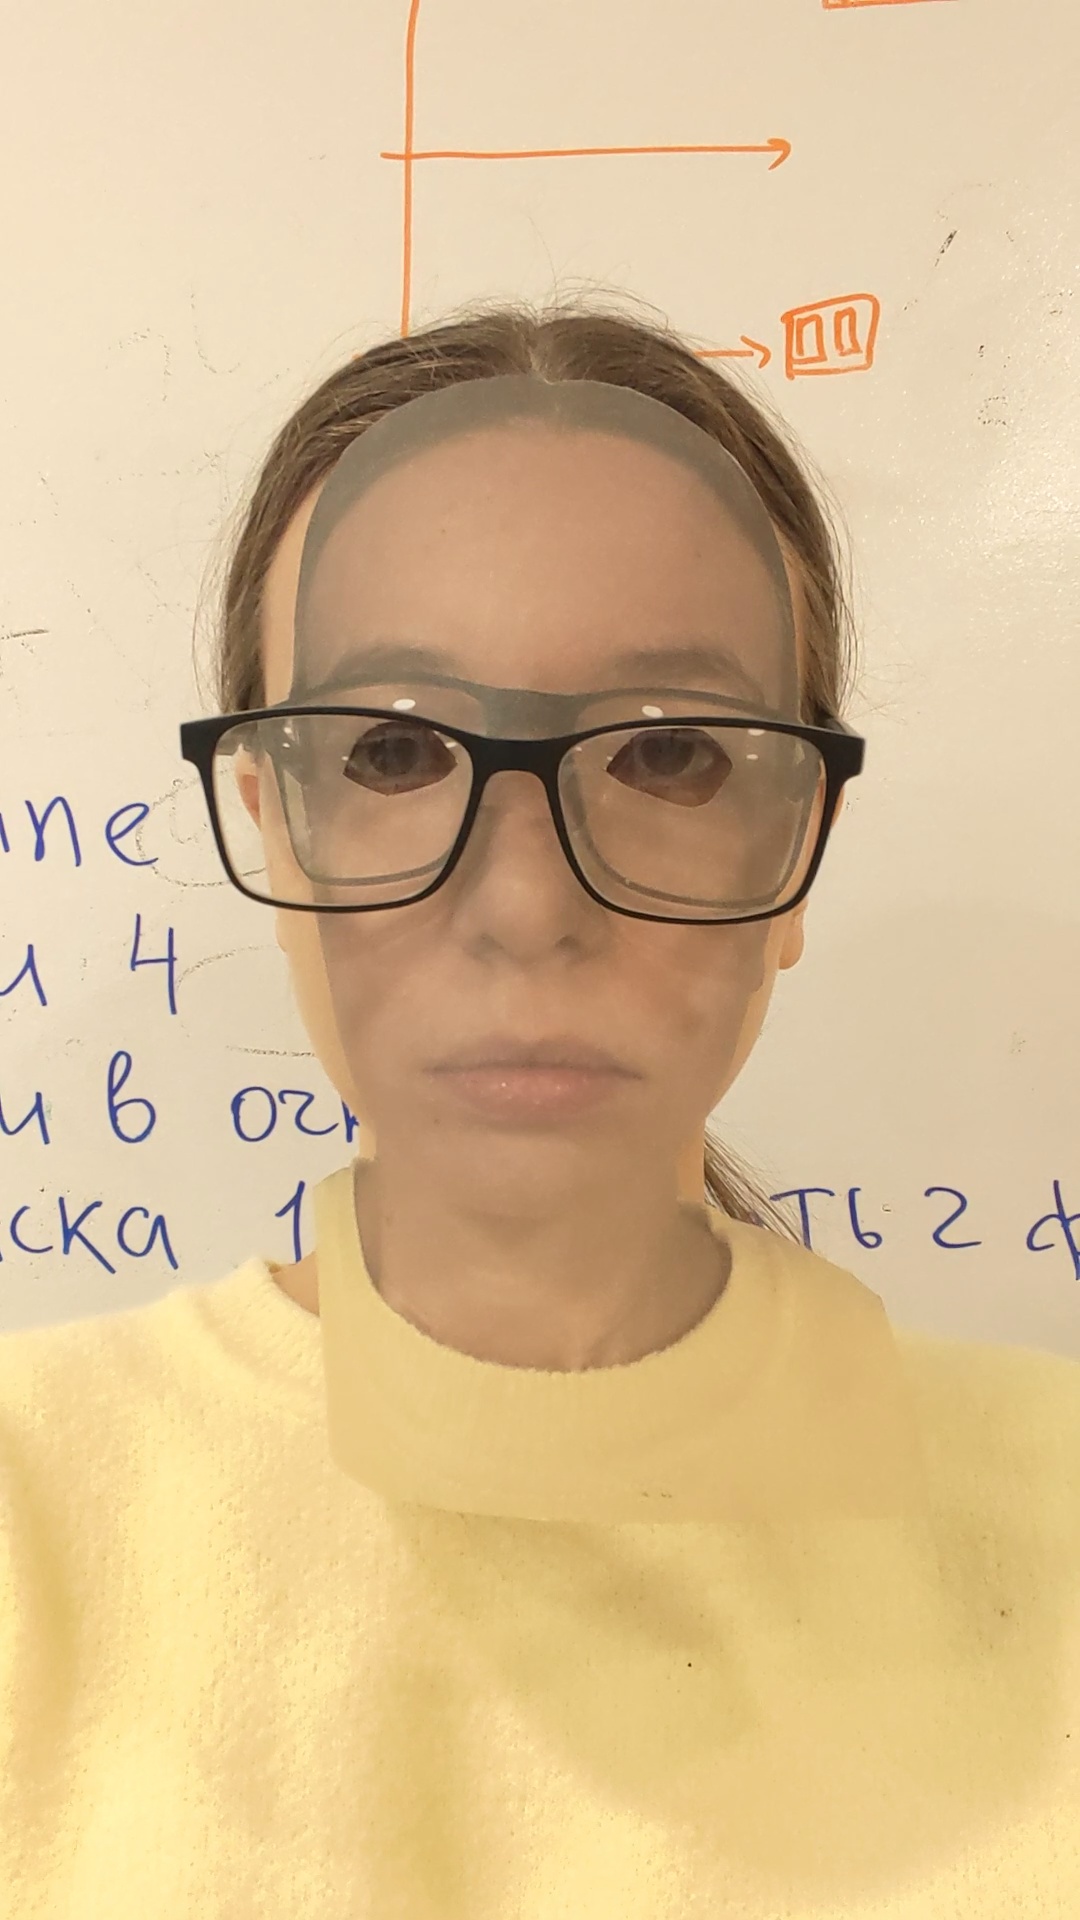 ine
и 4
и в очк
ска 1 ть 2 ф